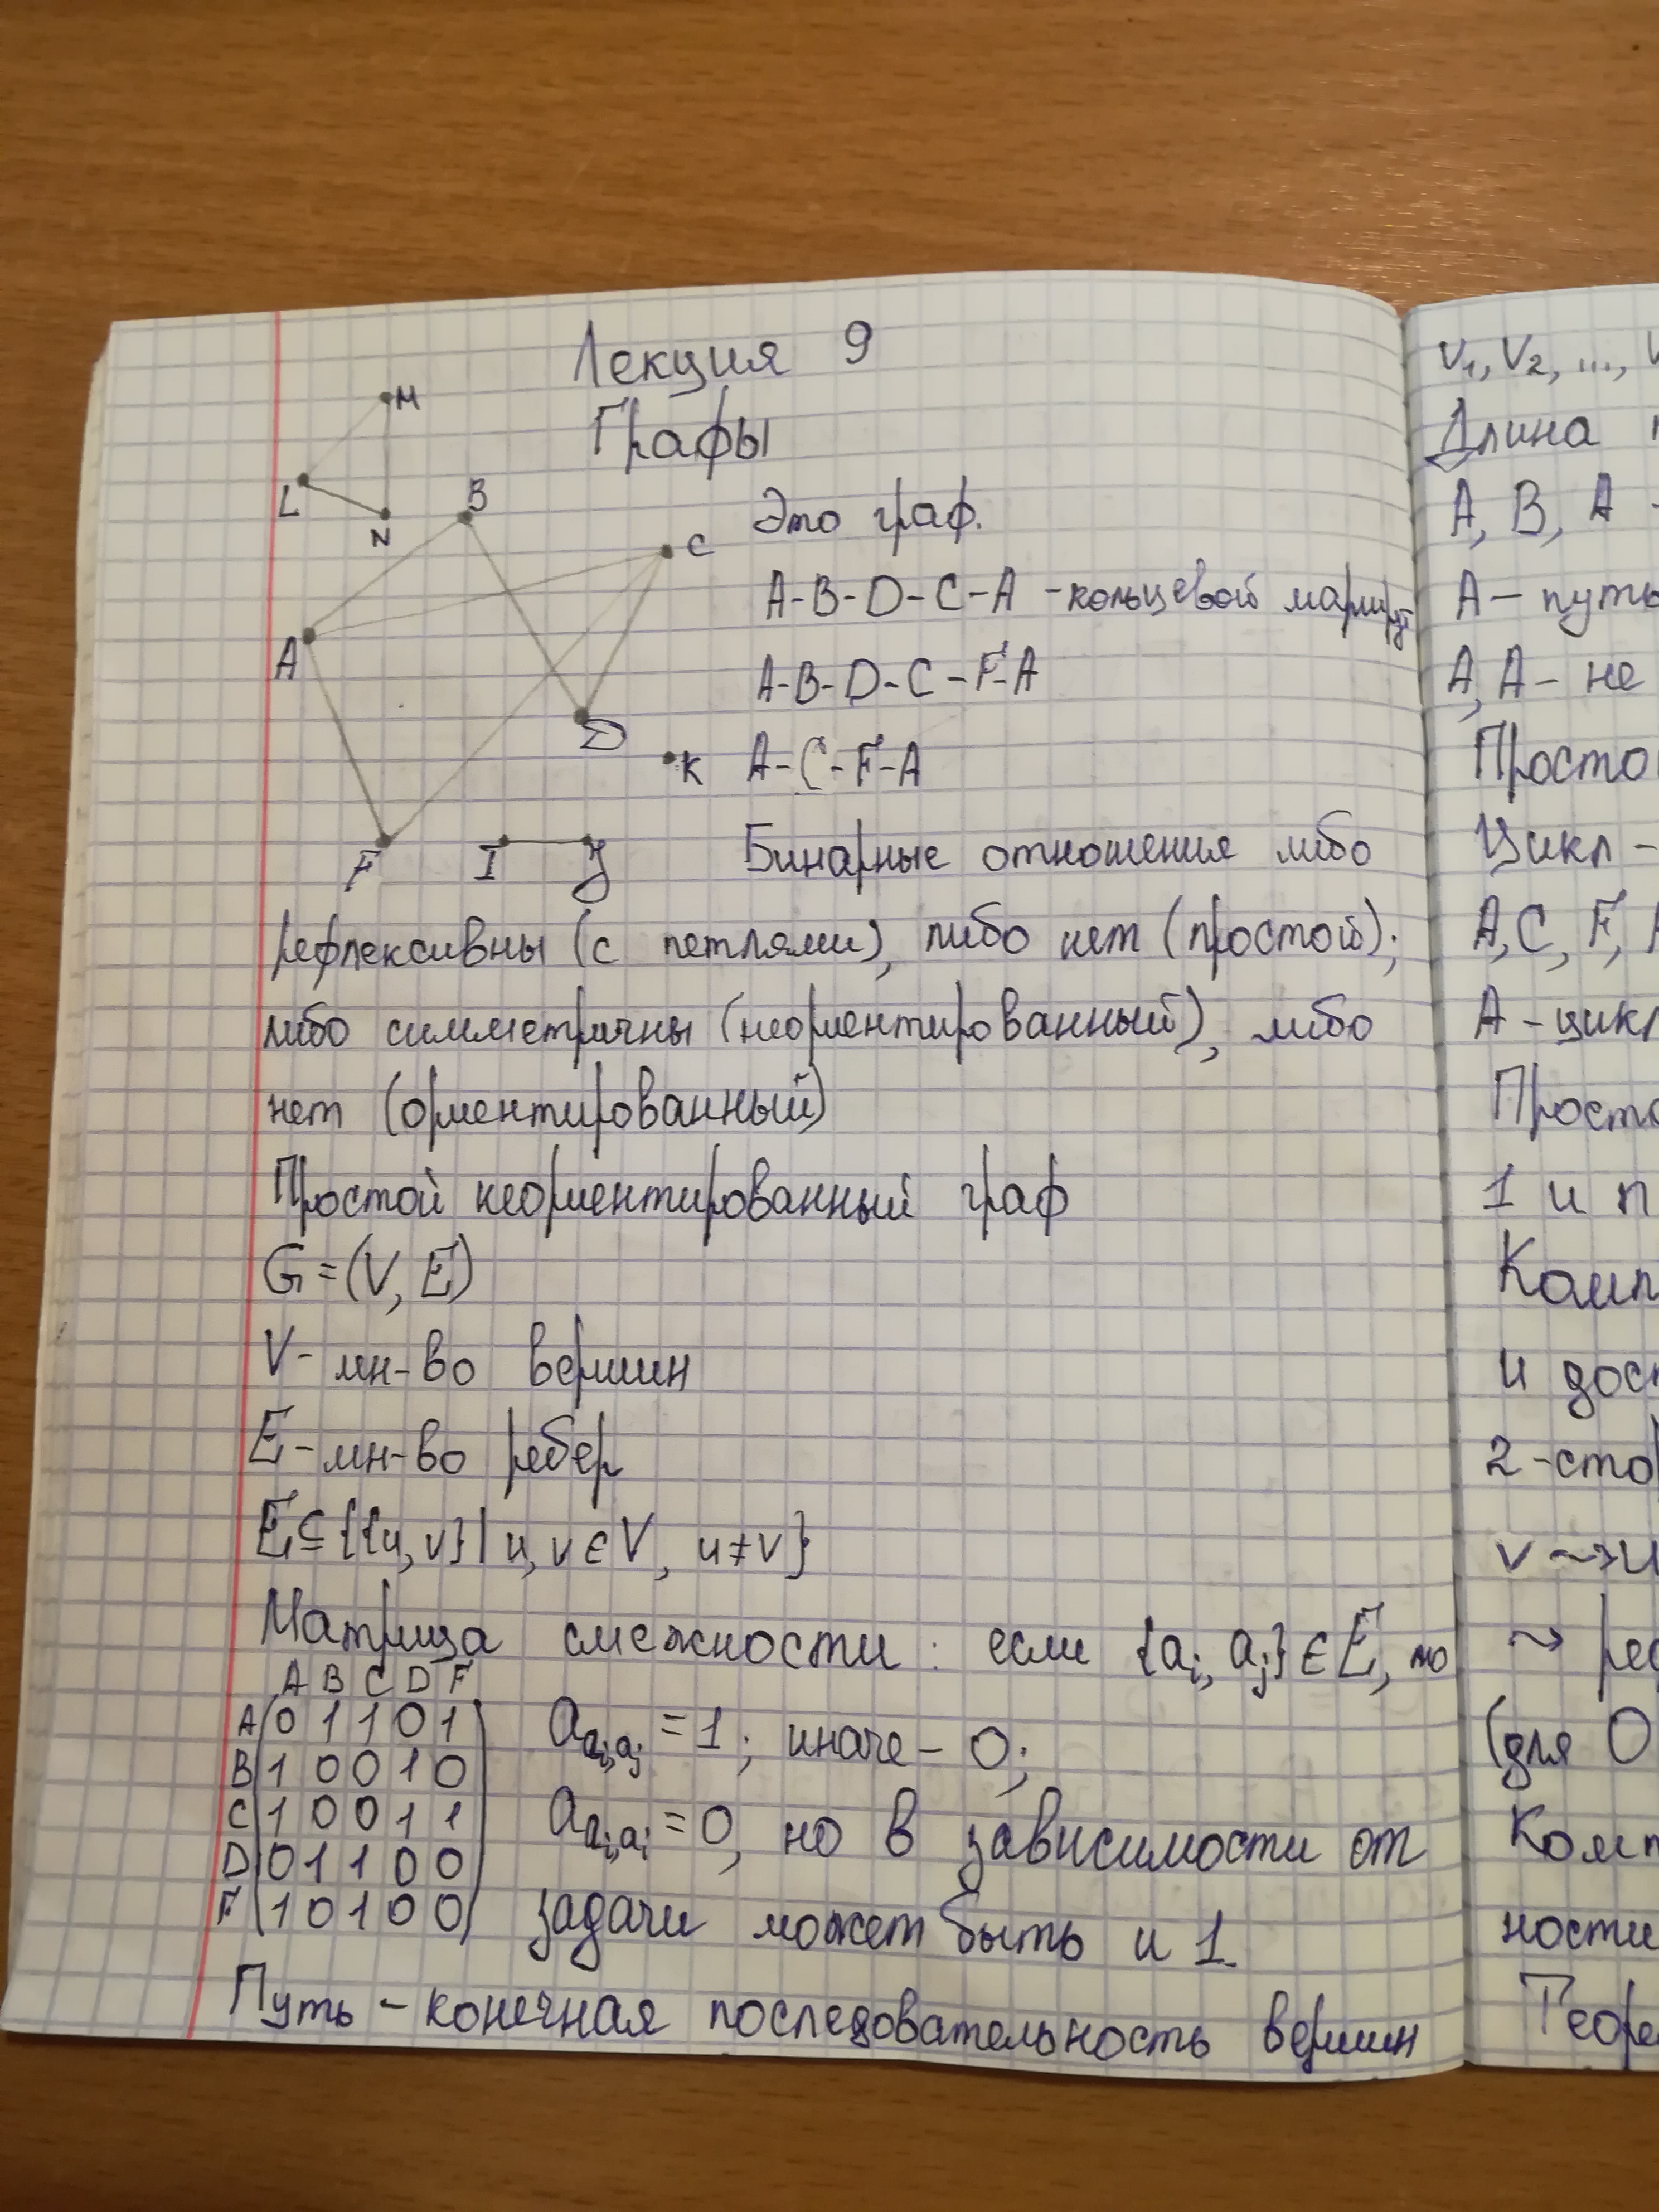 Лекция 9
Графы
M
L
N
B
C
A
D
K
F
I
J
Это граф.
A-B-D-C-A - кольцевой маршрут
A-B-D-C-F-A
A-C-F-A
Бинарные отношения либо
рефлексивны (с петлями), либо нет (простой);
либо симметричны (неориентированный), либо
нет (ориентированный)
Простой неориентированный граф
G=(V, E)
V- мн-во вершин
E-мн-во ребер
E⊆{{u, v}| u, v∈V, u≠v}
Матрица смежности: если {aᵢ, aⱼ}∈E, то
A B C D F
A 0 1 1 0 1
B 1 0 0 1 0
C 1 0 0 1 1
D 0 1 1 0 0
F 1 0 1 0 0
a_{aᵢ,aⱼ} = 1; иначе - 0;
a_{aᵢ,aᵢ} = 0, но в зависимости от
задачи может быть и 1.
Путь - конечная последовательность вершин
V₁, V₂, ...,
Длина
A, B, A -
A - путь
A, A - не
Просто
Цикл -
A, C, F,
A - цикл
Просто
1 и п
Комп
и дос
2-сто
v ⤳ u
⤳ ре
(для 0
Комп
ности
Теоре